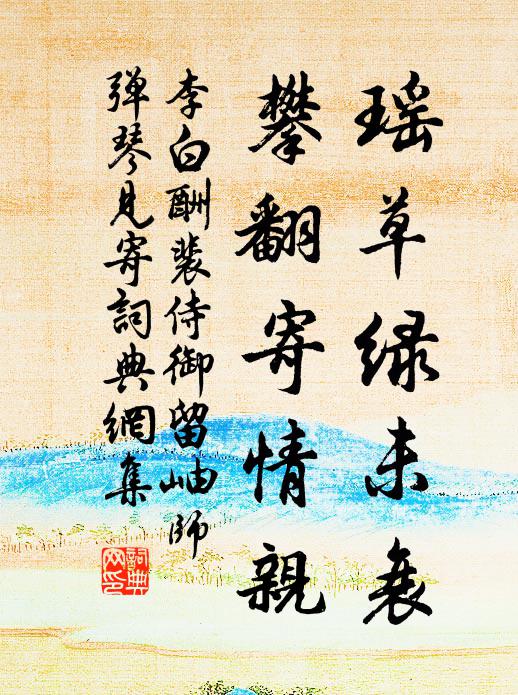 瑶草緑未衰
攀翻寄情親
李白酬裴侍御留岫師
弹琴見寄詞典網集
詞典网印